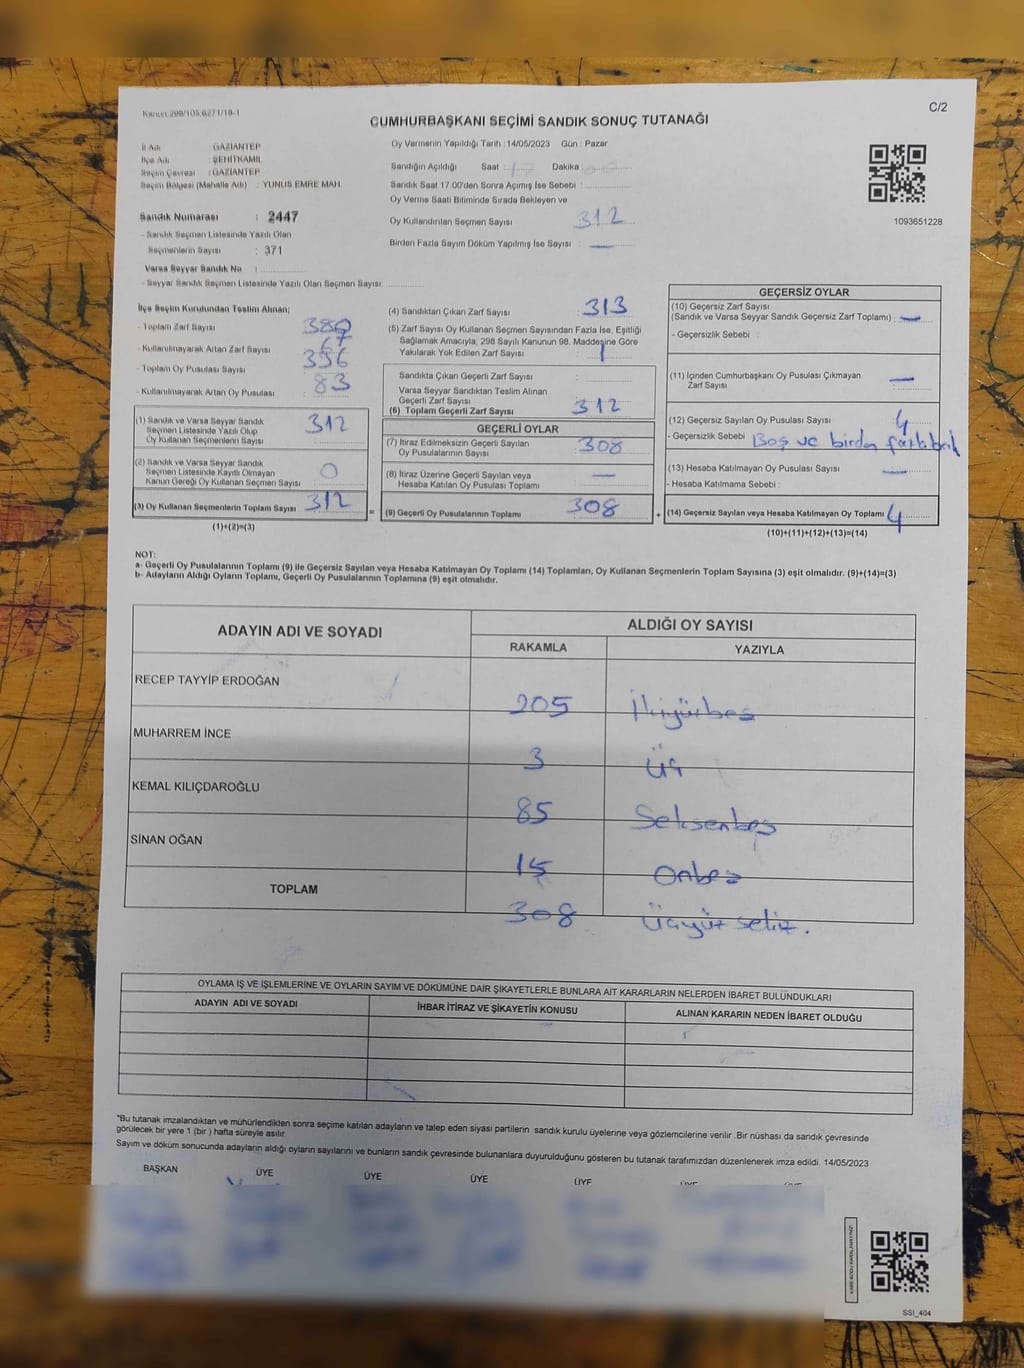 Kanun:298/105,6271/18-1
C/2
CUMHURBAŞKANI SEÇİMİ SANDIK SONUÇ TUTANAĞI
İl Adı : GAZİANTEP
İlçe Adı : ŞEHİTKAMİL
Seçim Çevresi : GAZİANTEP
Seçim Bölgesi (Mahalle Adı) : YUNUS EMRE MAH.
Sandık Numarası : 2447
- Sandık Seçmen Listesinde Yazılı Olan
Seçmenlerin Sayısı : 371
Varsa Seyyar Sandık No :
- Seyyar Sandık Seçmen Listesinde Yazılı Olan Seçmen Sayısı:
Oy Vermenin Yapıldığı Tarih : 14/05/2023 Gün : Pazar
Sandığın Açıldığı Saat : Dakika :
Sandık Saat 17.00'den Sonra Açımış İse Sebebi :
Oy Verme Saati Bitiminde Sırada Bekleyen ve
Oy Kullandırılan Seçmen Sayısı 312
Birden Fazla Sayım Döküm Yapılmış İse Sayısı : —
1093651228
İlçe Seçim Kurulundan Teslim Alınan;
- Toplam Zarf Sayısı 380
- Kullanılmayarak Artan Zarf Sayısı : 67
- Toplam Oy Pusulası Sayısı 396
- Kullanılmayarak Artan Oy Pusulası : 83
(1) Sandık ve Varsa Seyyar Sandık
Seçmen Listesinde Yazılı Olup
Oy Kullanan Seçmenlerin Sayısı : 312
(2) Sandık ve Varsa Seyyar Sandık
Seçmen Listesinde Kayıtlı Olmayan
Kanun Gereği Oy Kullanan Seçmen Sayısı : 0
(3) Oy Kullanan Seçmenlerin Toplam Sayısı : 312
(1)+(2)=(3)
(4) Sandıktan Çıkan Zarf Sayısı : 313
(5) Zarf Sayısı Oy Kullanan Seçmen Sayısından Fazla İse, Eşitliği
Sağlamak Amacıyla, 298 Sayılı Kanunun 98. Maddesine Göre
Yakılarak Yok Edilen Zarf Sayısı : 1
Sandıkta Çıkan Geçerli Zarf Sayısı :
Varsa Seyyar Sandıktan Teslim Alınan
Geçerli Zarf Sayısı :
(6) Toplam Geçerli Zarf Sayısı : 312
GEÇERLİ OYLAR
(7) İtiraz Edilmeksizin Geçerli Sayılan
Oy Pusulalarının Sayısı : 308
(8) İtiraz Üzerine Geçerli Sayılan veya
Hesaba Katılan Oy Pusulası Toplamı : —
= (9) Geçerli Oy Pusulalarının Toplamı : 308
GEÇERSİZ OYLAR
(10) Geçersiz Zarf Sayısı
(Sandık ve Varsa Seyyar Sandık Geçersiz Zarf Toplamı) : —
- Geçersizlik Sebebi :
(11) İçinden Cumhurbaşkanı Oy Pusulası Çıkmayan
Zarf Sayısı : —
(12) Geçersiz Sayılan Oy Pusulası Sayısı : 4
- Geçersizlik Sebebi Boş ve birden
(13) Hesaba Katılmayan Oy Pusulası Sayısı : —
- Hesaba Katılmama Sebebi :
+ (14) Geçersiz Sayılan veya Hesaba Katılmayan Oy Toplamı : 4
(10)+(11)+(12)+(13)=(14)
NOT:
a- Geçerli Oy Pusulalarının Toplamı (9) ile Geçersiz Sayılan veya Hesaba Katılmayan Oy Toplamı (14) Toplamları, Oy Kullanan Seçmenlerin Toplam Sayısına (3) eşit olmalıdır. (9)+(14)=(3)
b- Adayların Aldığı Oyların Toplamı, Geçerli Oy Pusulalarının Toplamına (9) eşit olmalıdır.
ADAYIN ADI VE SOYADI
ALDIĞI OY SAYISI
RAKAMLA YAZIYLA
RECEP TAYYİP ERDOĞAN 205 İkiyüzbeş
MUHARREM İNCE 3 Üç
KEMAL KILIÇDAROĞLU 85 Seksenbeş
SİNAN OĞAN 15 Onbeş
TOPLAM 308 Üçyüz sekiz.
OYLAMA İŞ VE İŞLEMLERİNE VE OYLARIN SAYIM VE DÖKÜMÜNE DAİR ŞİKAYETLERLE BUNLARA AİT KARARLARIN NELERDEN İBARET BULUNDUKLARI
ADAYIN ADI VE SOYADI İHBAR İTİRAZ VE ŞİKAYETİN KONUSU ALINAN KARARIN NEDEN İBARET OLDUĞU
*Bu tutanak imzalandıktan ve mühürlendikten sonra seçime katılan adayların ve talep eden siyasi partilerin sandık kurulu üyelerine veya gözlemcilerine verilir .Bir nüshası da sandık çevresinde
görülecek bir yere 1 (bir) hafta süreyle asılır.
Sayım ve döküm sonucunda adayların aldığı oyların sayılarını ve bunların sandık çevresinde bulunanlara duyurulduğunu gösteren bu tutanak tarafımızdan düzenlenerek imza edildi. 14/05/2023
BAŞKAN ÜYE ÜYE ÜYE ÜYE ÜYE ÜYE
SSI_404